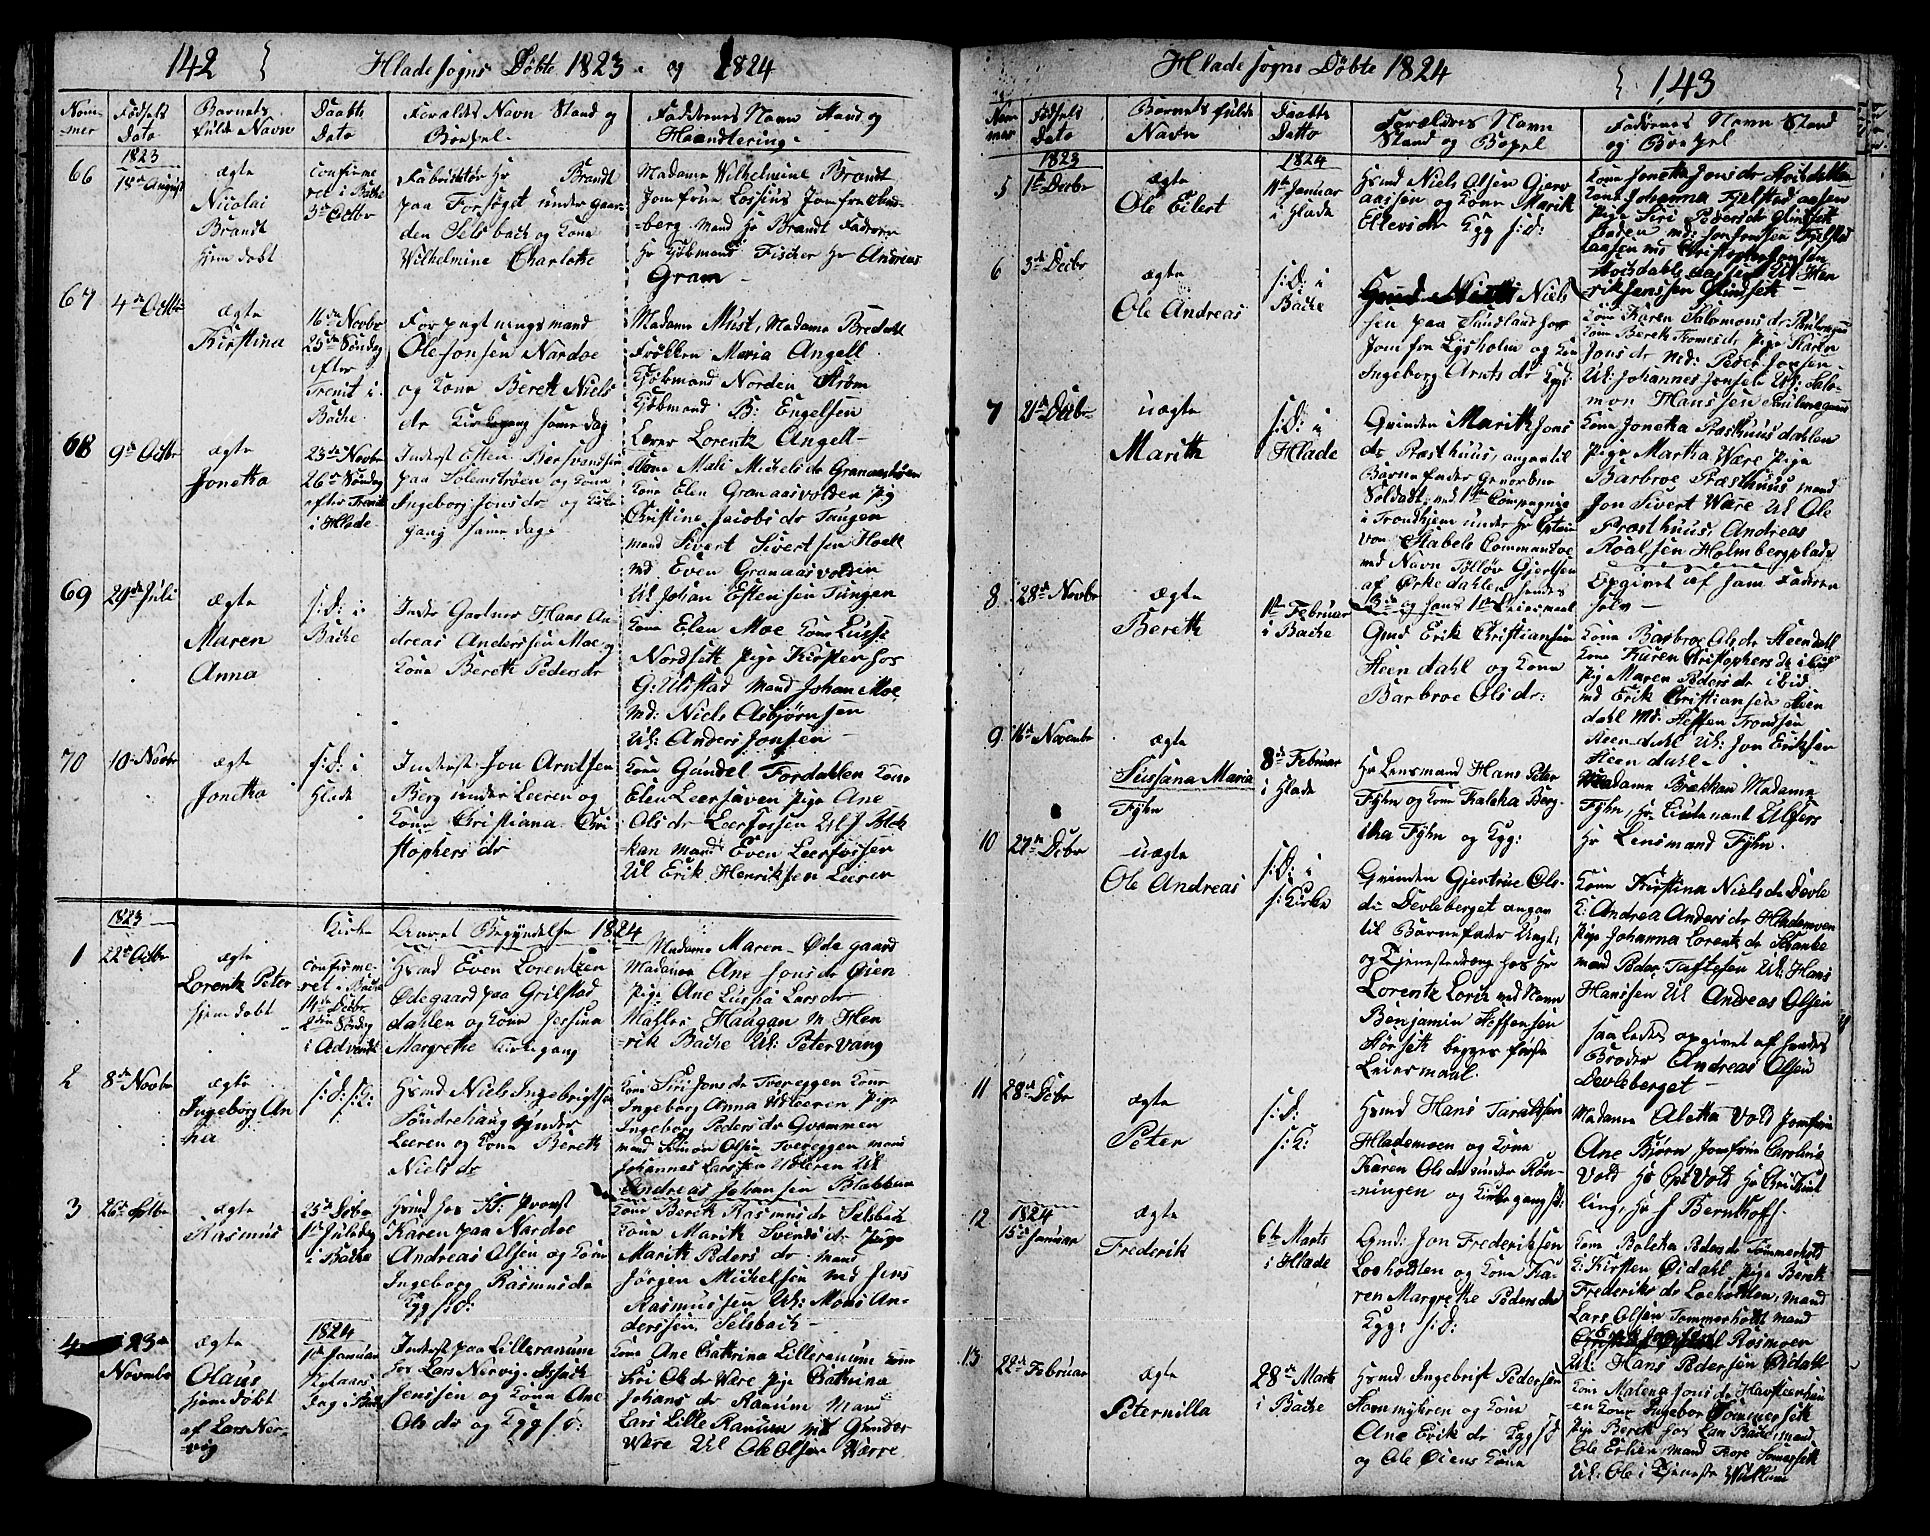 142 Hlade sogns Døbte 1823 og 1824
Nom-
mer
Fødsels
Dato
Barnets
fulde Navn
Daabs
Dato
Forældes Navn Stand og
Boepel
Faddernes Navn Stand og
Haandtering
66
1823
18de August
ægte
Nicolai
Brandt
hjemdøbt
Confirme
ret i Bakke
3de Octbr
Fabriktør Hr Brandt
paa Forsøget under gaar-
den Selsbach og Kone
Wilhelmine Charlotte
Madame Wilhelmine Brandt
Jomfrue Lossius Jomfrue
-berg Mand Hr Brandt Faderen
Hr Kjøbmand Fischer Hr Andreas
Gram
67
4de Octbr
ægte
Kirstina
16de Novbr
25de Søndag
efter
Trenit i
Bakke
Forpagtningsmand
Ole Jonsen Nardoe
og Kone Bereth Niels
dr Kirkegang samme Dag
Madame Must, Madame Bredahl
Frøken Maria Angell
Kjøbmand Norden Strøm
Kjøbmand B: Engelsen
Lorentz Angell
68
9de Octbr
ægte
Jonetha
23de Novbr
26de Søndag
efter Trenit
i Hlade
Inderst Esten Bersvendsen
paa Solemstrøen og Kone
Ingeborg Jonsdr og Kirke
gang samme Dag
Kone Mali Michelsdr Granaasvolden
Kone Elen Granaasvolden Pig
Christine Jacobsdr Tungen
Mand Sivert Sivertsen Hoell
Md Even Granaasvolden
Uk Johan Estensen Tungen
69
29de Juli
ægte
Maren
Anna
S:D: i
Bakke
Inder Gartner Hans An-
dreas Anderssen Moe og
Kone Bereth Pedersdr
Kone Elen Moe Kone Lussi
Nordseth Pige Kirsten hos
G: Uldstad Mand Johan Moe
Md: Niels Asbjørnsen
Uk: Anders Jonsen
70
10 Novbr
ægte
Jonetha
S:D: i
Hlade
Inderst Jon Arntsen
Berg under Leeren og
Kone Christiana Chri
stophersdr
Kone Gundel Fordahlen Kone
Elen Leersaven Pige Ane
Olsdr Leerfossen Uk J Blek
-kan Mand Even Leerfossen
Uk Erik Henriksen Leeren
Kirke Aaret Begyndelse 1824
1
1823
22de Octbr
ægte
Lorentz Peter
hjemdøbt
Confirme-
ret i Bakke
14de Debr
2den Søndag
i Advent
Hsmd Even Lorentzen
Ødegaard paa Grilstad
dahlen og Kone Jessina
Margrethe Kirkegang
Madame Maren Ødegaard
Madame Ane Jonsdr Øien
Pige Ane Lussia Larsdr
Haugan M Hen
-rik Bakke Uk: Peter Vang
2
8de Novbr
ægte
Ingeborg An
na
S:D: S:K:
Hsmd Niels Ingebrigtsen
Søndrehaug under
Leeren og Kone Bereth
Nielsdr
Kone Siri Jonsdr Tvereggen Kone
Ingeborg Anna Udleeren Pige
Ingeborg Pedersdr Qvammen
Mand Simon Olsen Tvereggen Mand
Johannes Larssen Udleren Uk
Andreas Johansen Blakkan
3
26de Octbr
ægte
Rasmus
25de Debr
1ste Juledag
i Bakke
Hsmd hos Hr Provst
Karen paa Nardoe
Andreas Olsen og Kone
Ingeborg Rasmusdr
Kgg S:D:
Kone Bereth Rasmusdr Selsbach
Kone Marith Svendsdr Pige
Marith Pedersdr Mand
Jørgen Michelsen Md Jens
Rasmussen Uk: Mons An-
derssen Selsbach
4
23de
Novembr
ægte
Olaus
hjemdøbt
af Lars Ner-
vig
1824
1ste Januar
Nytaars
dag i Bakke
Inderst paa Lilleranum
hos Lars Nervig
Jenssen og Kone Ane
Olsdr og Kgg S:D:
Kone Ane Cathrina Lilleranum Kone
Siri Olsdr Være Pige Cathrina
Johansdr Ranum Mand
Lars Lille Ranum Md Gunder
Være Uk Ole Olsen Værre
Hlade sogns Døbte 1824 143
Num-
mer
Fødsels
Dato
Barnets fulde
Navn
Daabs
Datto
Forældres Navn
Stand og Bopel
Faddernes Navn Stand
og Boepel
5
1823
1ste Decbr
ægte
Ole Eilert
1824
11te Januar
i Hlade
Hsmd Niels Olsen Gjerv
aassen og Kone Marith
Ellevsdr Kgg S:D:
Kone Jonetha Jonsdr
Kone Johanna Fjelstadaasen
Pige Siri Pedersdr Qlindseth
Baden Md: Jon Jonsen Fjelstad
aasen Md Christopher Jonsen
Uk Hen
rik Jenssen Qlindseth
6
3de Decbr
ægte
Ole Andreas
S:D: i
Bakke
Niels
sen paa Sundland hos
Jomfru Lysholm og Kone
Ingeborg Arntsdr Kgg
Kone Karen Salomonsdr
Kone Bereth Pige Karen
Jonsdr Md: Peder Jonsen
Uk: Johannes Jonsen Uk: Salo-
mon Hanssen
7
21de Decbr
uægte
Marith
S:D: i
Hlade
Qvinden Marith Jons
dr Præsthuus, angav til
Barnefader Gevorbne
Soldat ved 1ste Compagnie
i Trondhjem under Hr Capitain
von Stabels Commandoe
med Navn Tolløv Gjertsen
af Ørkedahlen hendes
og hans 1ste Leiermaal
Kone Jonetha Præsthuusdahlen
Pige Martha Være Pige
Barbroe Præsthuus Mand
Jon Sivert Være Uk Ole
Præsthuus, Andreas
Roalsen Holmbergplads
Opgivet af Jam Fadren
selv
8
28de Novbr
ægte
Bereth
1ste Februar
i Bakke
Gmd Erik Christiansen
Steendahl og Kone
Barbroe Olsdr:
Kone Barbroe Olsdr Steendahl
Kone Karen Christophersdr
Pige Maren Pedersdr i Eid
Md Erik Christiansen Steen
dahl Md: Hesten Trondsen
Steendahl Uk: Jon Eriksen
Steendahl
9
16de Novembr
ægte
Sussana Maria
Fyhn
8de Februar
i Hlade
Hr Lensmand Hans Peter
Fyhn og Kone Kaletha Berg-
itha Fyhn og Kgg:
Madame Brækkan Madame
Fyhn, Hr Lieutenant Ulsfers
Hr Lensmand Fyhn
10
27de Debr
uægte
Ole Andreas
S:D: i
S:Kirke
Qvinden Gjertrue Ols-
dr Devleberget angav
til Barnefader Ungk:
og Tjenestedreng hos Hr
Lorentz Lorch med Navn
Benjamin Steffensen
Hørseth begges første
Leiermaal
Kone Kirstina Nielsdr Devle
K: Andrea Andersdr Hlademoen
Pige Johanna Lorentzdr Schanke
Mand Peder Taftesen Uk: Hans
Hanssen Uk Andreas Olsen
saaledes opgivet af hendes
Broder Andreas Olsen
Devleberget
11
28de Debr
ægte
Peter
S:D:
S:K:
Hsmd Hans Taraldsen
Hlademoen og Kone
Karen Olsdr under Røn-
ningen og Kirkegang S:D:
Madame Aletha Vold Jomfrue
Ane Bjørn Jomfrue Caroline
Vold Hr Cpt Vold Hr
ling, Hr J Bernhoft
12
1824
15de Januar
ægte
Frederik
6te Marts
i Hlade
Lgmd: Jon Frederiksen
Loeholdten og Kone Ka-
ren Margrethe Pedersdr
Kgg: S:D:
Kone Baletha Pedersdr Tommerholt
K: Kirsten Øidahl Pige Bereth
Frederiksdr Loeholdten, Mand
Lars Olsen Tommerholt Mand
Rosmoen
Uk: Hans Pedersen Øiedahl
13
22de Februar
ægte
Peternilla
28de Marts
i Bakke
Hsmd Ingebrigt Pedersen
Hammyhren og Kone
Ane Eriksdr Kgg S:D
og Ole Øiens Kone
Kone Malena Jonsdr Havsteenhau
en Kone Ingebor Sommerseth
Pige Bereth hos Lars Bakke, Mand
Ole Erlien, Mand Bore Sommerseth
Uk: Ole i Tjeneste Wullum